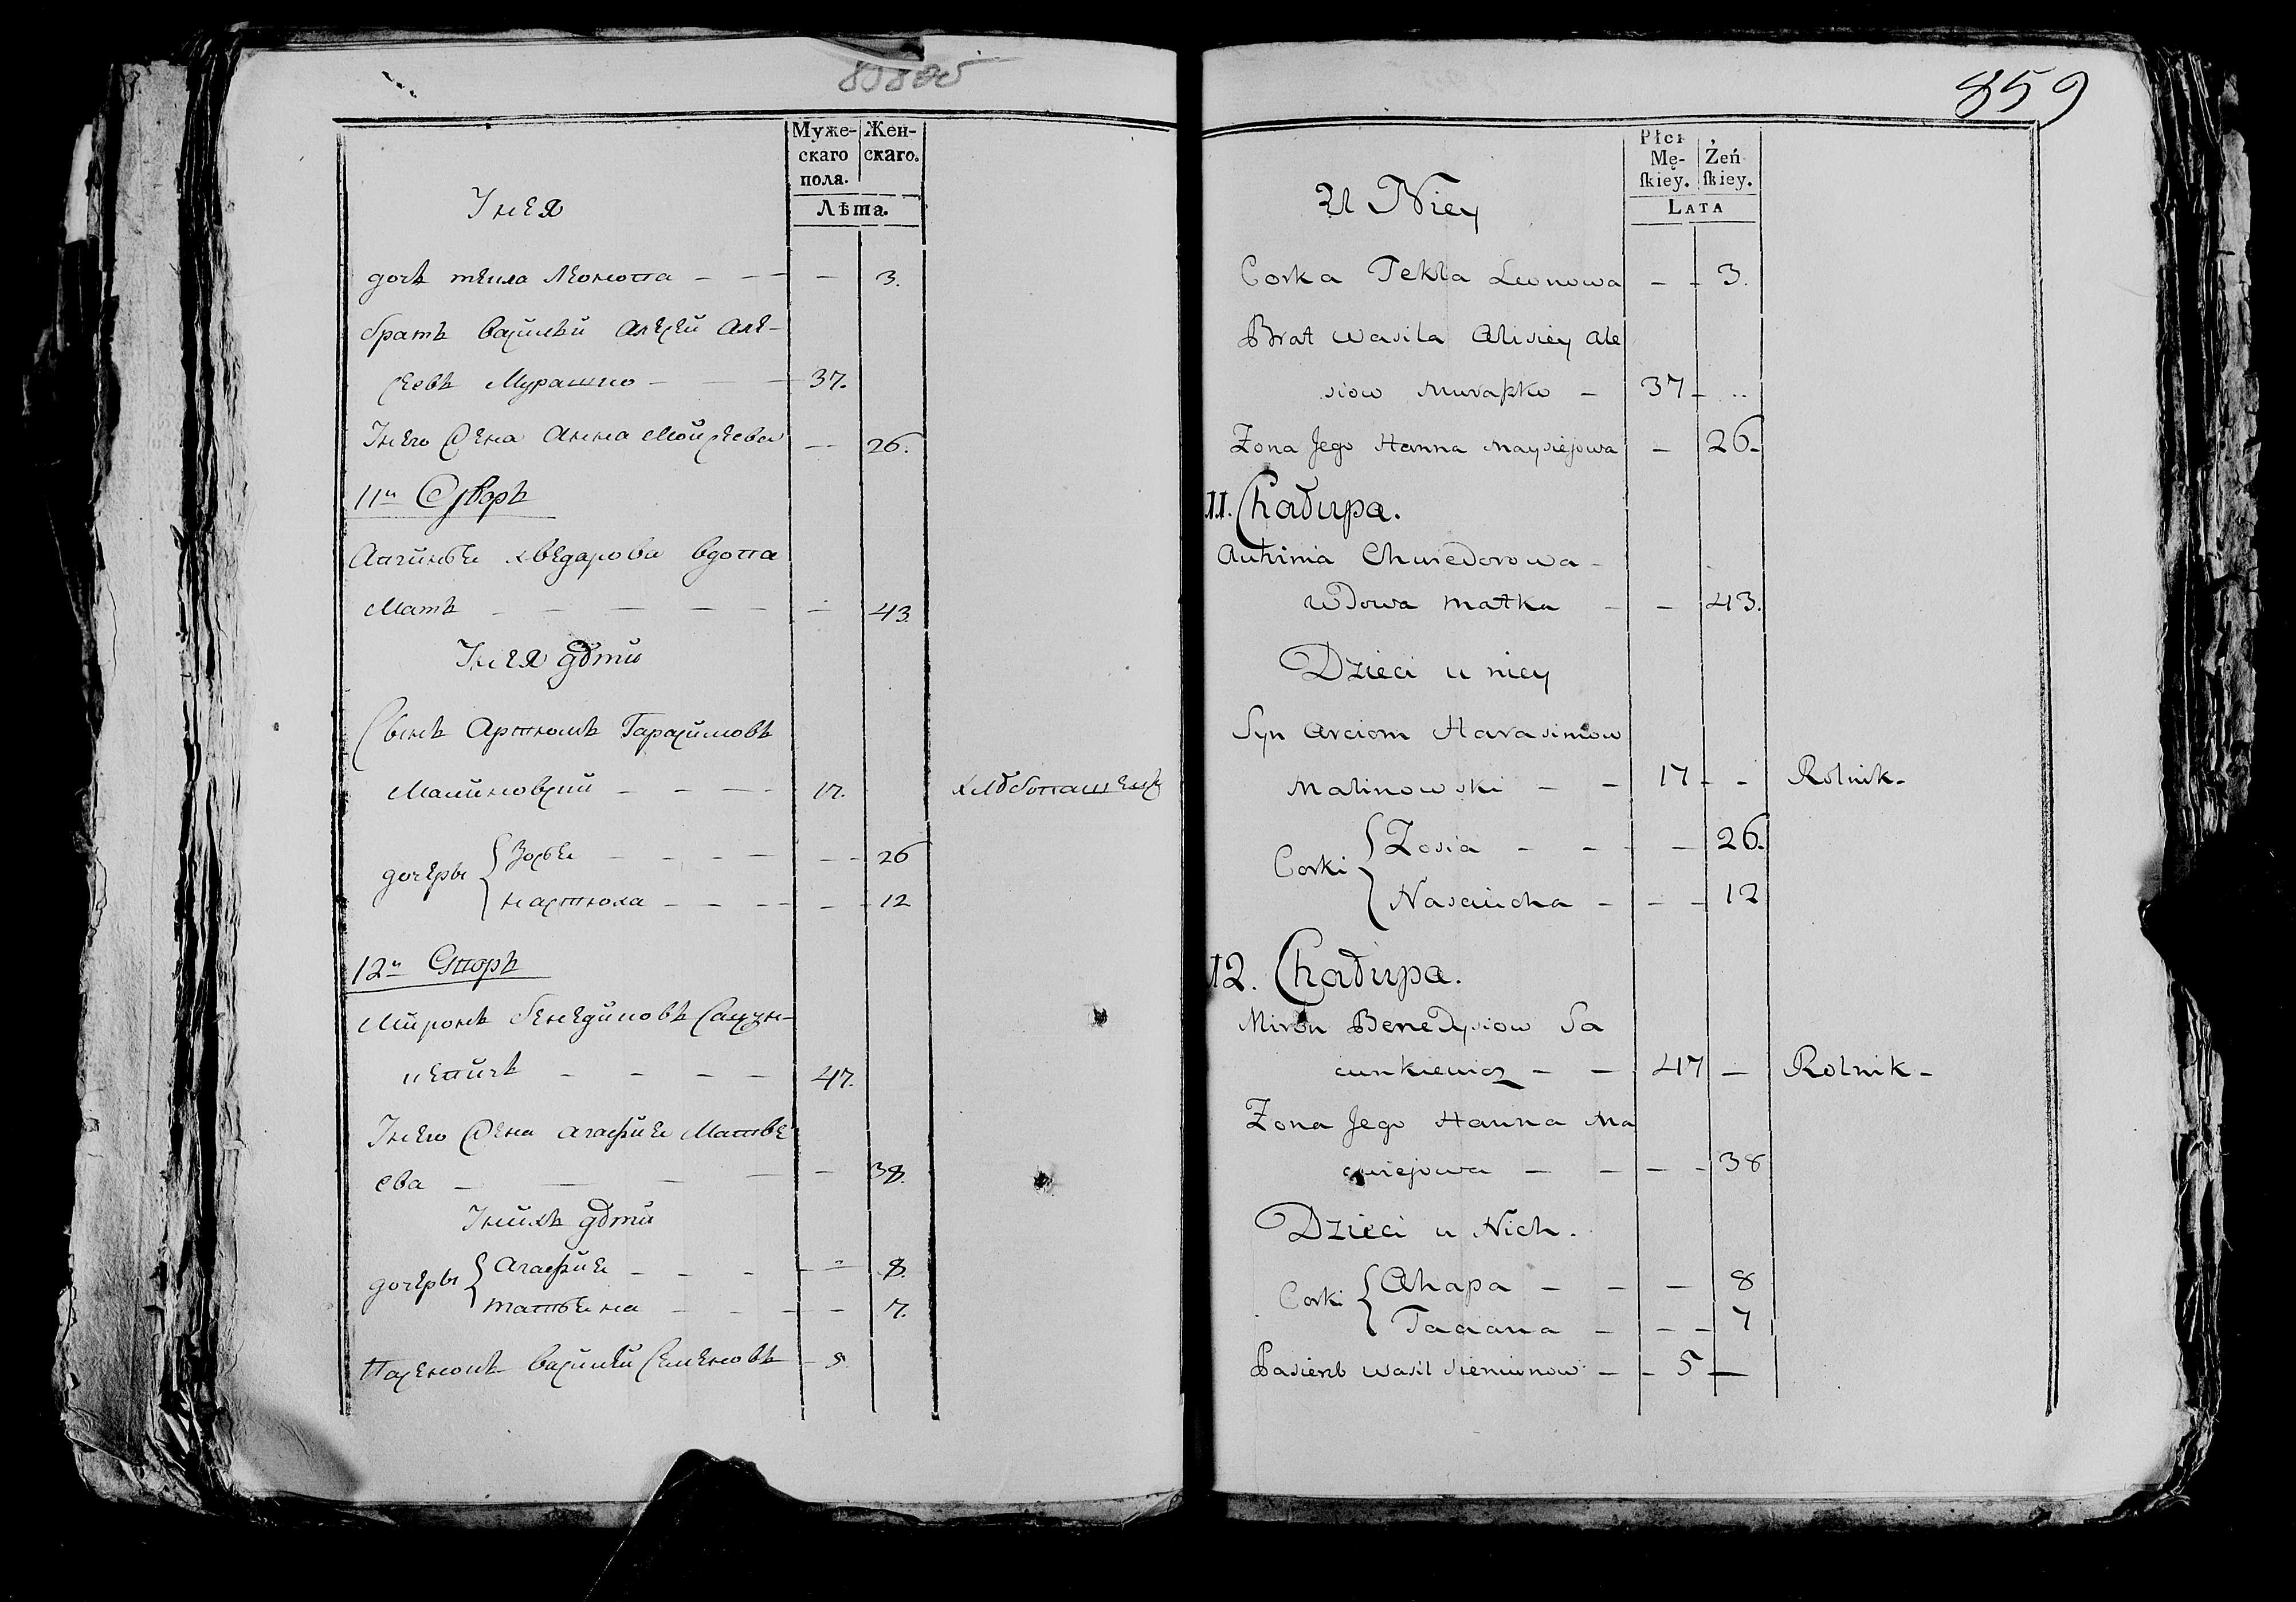 Муже-
скаго
пола.
Жен-
скаго.
Лѣта.
У нея
дочь текла Леонова - - - - 3.
братъ василей алесей але-
сеевъ Мурашко - - - 37.
У него жена анна Мойсеева - 26.
11й Дворъ
хведарова вдова
Мать - - - - - - 43.
У нея дѣти
Сынъ Артюомъ Гарасимовъ
Малиновский - - - - 17. хлѣбопашецъ
дочеры { Зося - - - - - - 26
настюха - - - - - - 12
12й Дворъ
Миронъ бенедисовъ Сацун-
кевичъ - - - - 47.
У него жена агафия Матве
ева - - - - - 38.
У нихъ дѣти
дочеры { Агафия - - - - - 8.
татьяна - - - - 7.
Пасенокъ василей Семеновъ - 5
859
Płci
Mę-
ſkiey.
Żeń
ſkiey.
LATA
U Niey
Corka Tekla Leonowa - - 3.
Brat Wasila Alisiey Ale
siow Muraszko - 37 - ..
Zona Jego Hanna Maysiejowa - 26 -
11. Chałupa.
Auhinia Chwiedorowa -
Wdowa matka - - 43.
Dzieci u niey
Syn Arciom Harasimow
Malinowski - - 17 - - Rolnik -
Corki { Zosia - - - - 26.
Nasciucha - - - 12
12. Chałupa.
Miron Benedysiow Sa
cunkiewicz - - 47 - Rolnik -
Zona Jego Hanna Ma
cwiejowa - - - - 38
Dzieci u Nich.
Corki { Ahapa - - - 8
Taciana - - - 7
Pasierb Wasil Siemionow - - 5 -